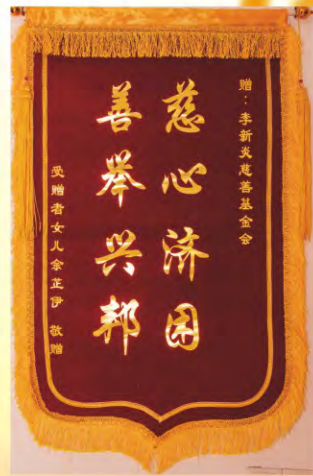 赠：李新炎慈善基金会
慈心济困
善举兴邦
受赠者女儿余芷伊 敬赠